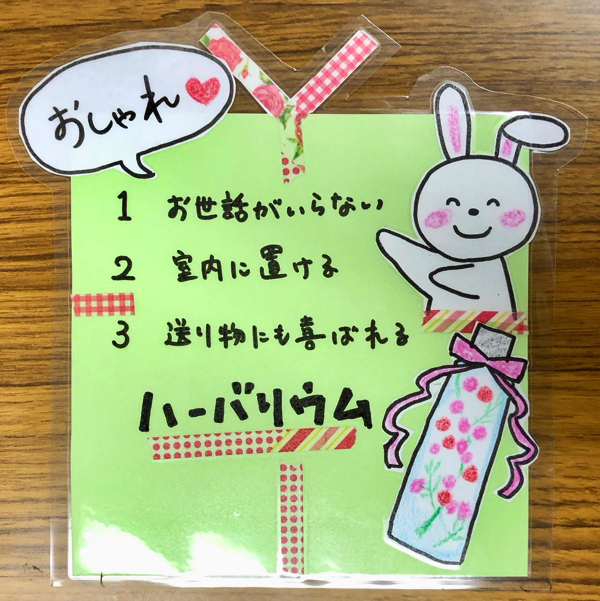 おしゃれ
1 お世話がいらない
2 室内に置ける
3 送り物にも喜ばれる
ハーバリウム